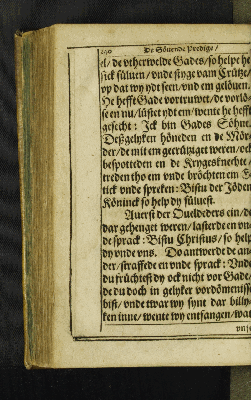 190 De Söuende Predige/
el/de vtherwelde Gades/so helpe he
sick süluen/vnde styge vam Crütze/
vp dat wy ydt seen/vnd em gelöuen.
He hefft Gade vortruwet/de vorlö-
se en nu/lüstet ydt em/wente he hefft
gesecht: Ick bin Gades Söhne.
Deßgelyken höneden en de Mör-
der/de mit em gecrützigt weren/ock
bespotteden en de Krygesknechte/
treden tho em vnde bröchten em E-
tick vnde spreken: Bistu der Jöden
Köninck so help dy süluest.
Auerst der Oueldeders ein/de
dar gehenget weren/lasterde en vn-
de sprack: Bistu Christus/so help
dy vnde vns. Do antwerde de an-
der/straffede en vnde sprack: Vnde
du früchtest dy ock nicht vor Gade/
de du doch in gelyker vordömenisse
bist/vnde twar wy synt dar billy-
ken inne/wente wy entfangen/wat
vnse